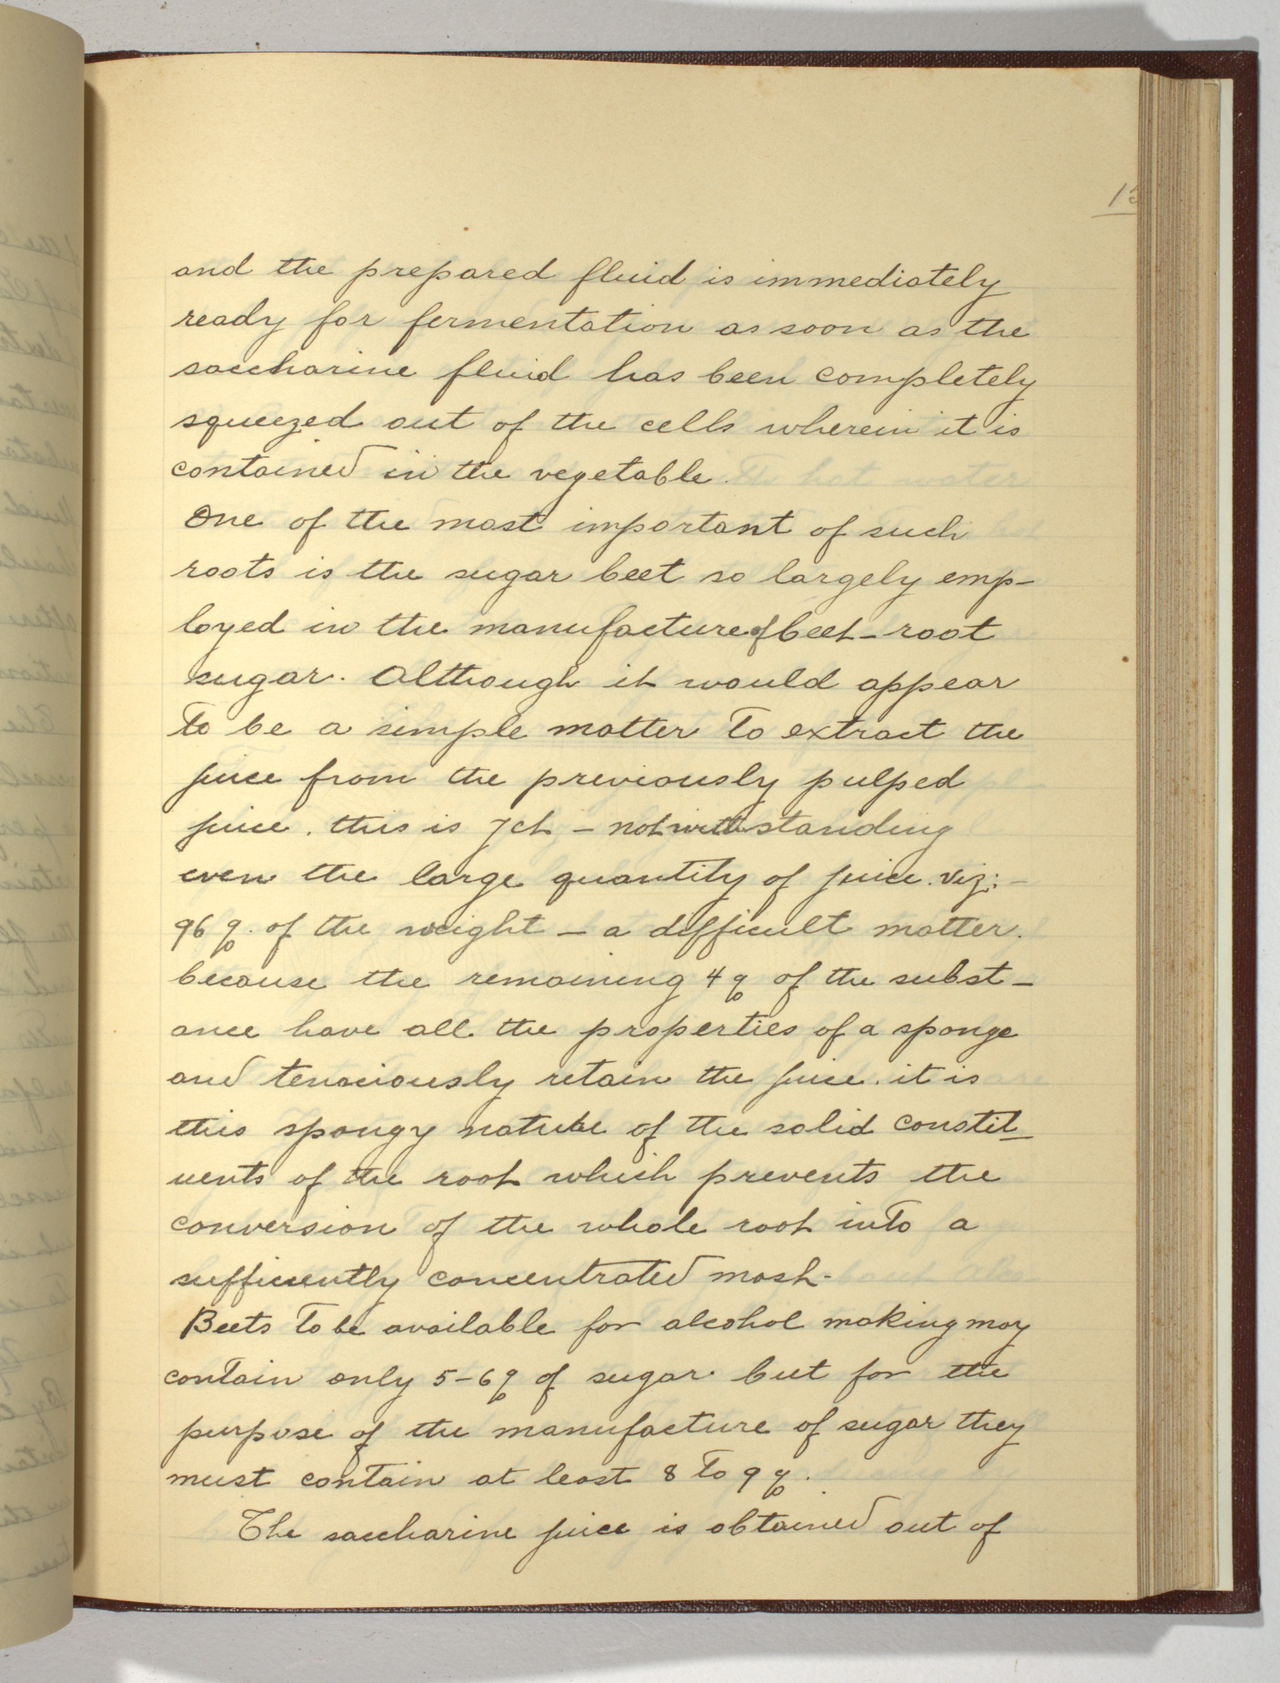 and the prepared fluid is immediately
ready for fermentation as soon as the
saccharine fluid has been completely
squeezed out of the cells wherein it is
contained in the vegetable.
One of the most important of such
roots is the sugar beet so largely emp-
loyed in the manufacture of beet-root
sugar. Although it would appear
To be a simple matter To extract the
juice from the previously pulped
juice. this is yet - notwithstanding
even the large quantity of juice. viz:-
96 % of the weight - a difficult matter.
because the remaining 4 % of the subst-
ance have all the properties of a sponge
and tenaciously retain the juice. it is
this spongy nature of the solid constit-
uents of the root which prevents the
conversion of the whole root into a
sufficiently concentrated mash.
Beets To be available for alcohol making may
contain only 5-6 % of sugar. but for the
purpose of the manufacture of sugar they
must contain at least 8 To 9 %.
The saccharine juice is obtained out of